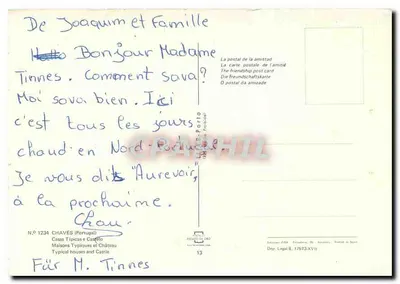 De Joaquim et Famille
Hallo Bonjour Madame
Tinnes. Comment sava?
Moi sava bien. Ici
c'est tous les jours
chaud en Nord-Portugal.
Je vous dis "Aurevoir,
à la prochaime.
Chau.
Für M. Tinnes
N.º 1234 CHAVES (Portugal)
Casas Típicas e Castelo
Maisons Typiques et Château
Typical houses and Castle
13
La postal de la amistad
La carte postale de l'amitié
The friendship post card
Die Freundschaftskarte
O postal da amizade